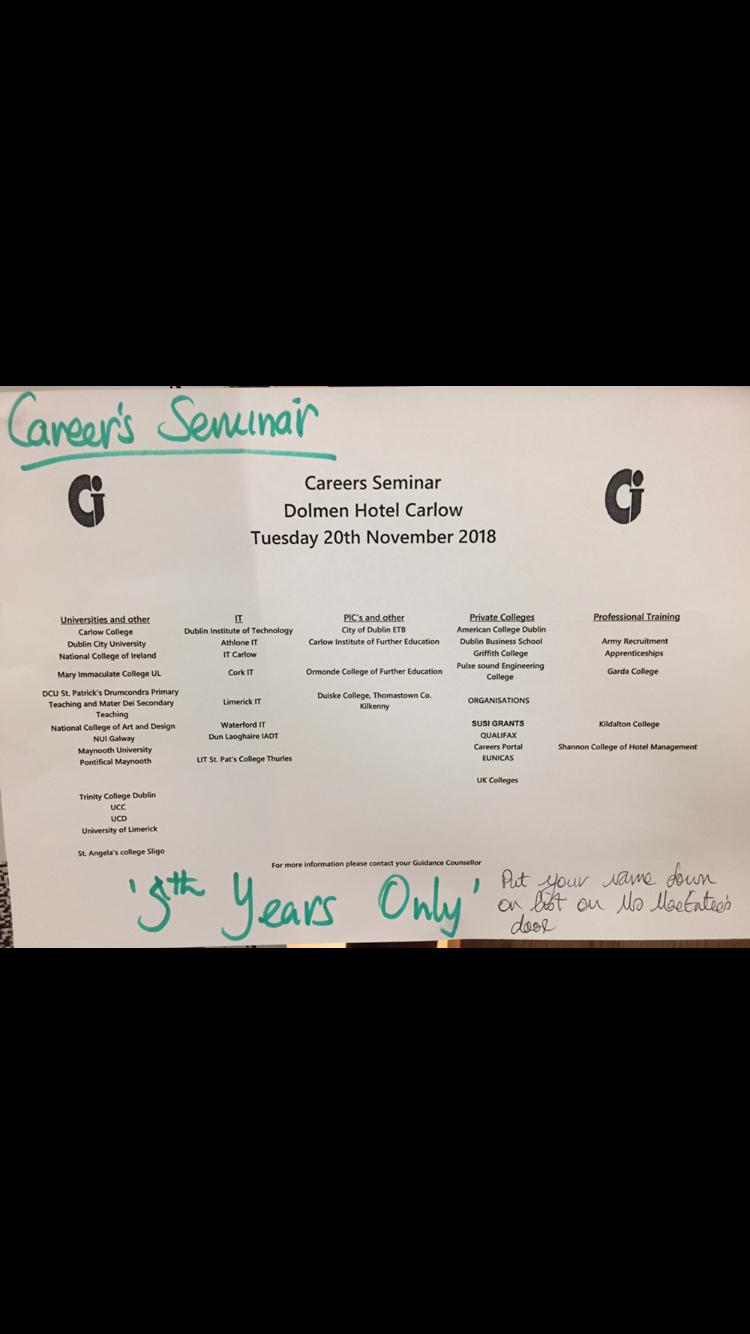 Career's Seminar
Careers Seminar
Dolmen Hotel Carlow
Tuesday 20th November 2018
Universities and other
Carlow College
Dublin City University
National College of Ireland
Mary Immaculate College UL
DCU St. Patrick's Drumcondra Primary
Teaching and Mater Dei Secondary
Teaching
National College of Art and Design
NUI Galway
Maynooth University
Pontifical Maynooth
Trinity College Dublin
UCC
UCD
University of Limerick
St. Angela's college Sligo
IT
Dublin Institute of Technology
Athlone IT
IT Carlow
Cork IT
Limerick IT
Waterford IT
Dun Laoghaire IADT
LIT St. Pat's College Thurles
PIC's and other
City of Dublin ETB
Carlow Institute of Further Education
Ormonde College of Further Education
Duiske College, Thomastown Co.
Kilkenny
Private Colleges
American College Dublin
Dublin Business School
Griffith College
Pulse sound Engineering
College
ORGANISATIONS
SUSI GRANTS
QUALIFAX
Careers Portal
EUNICAS
UK Colleges
Professional Training
Army Recruitment
Apprenticeships
Garda College
Kildalton College
Shannon College of Hotel Management
For more information please contact your Guidance Counsellor
'5th Years Only'
Put your name down
on list on Ms MacEntee's
door